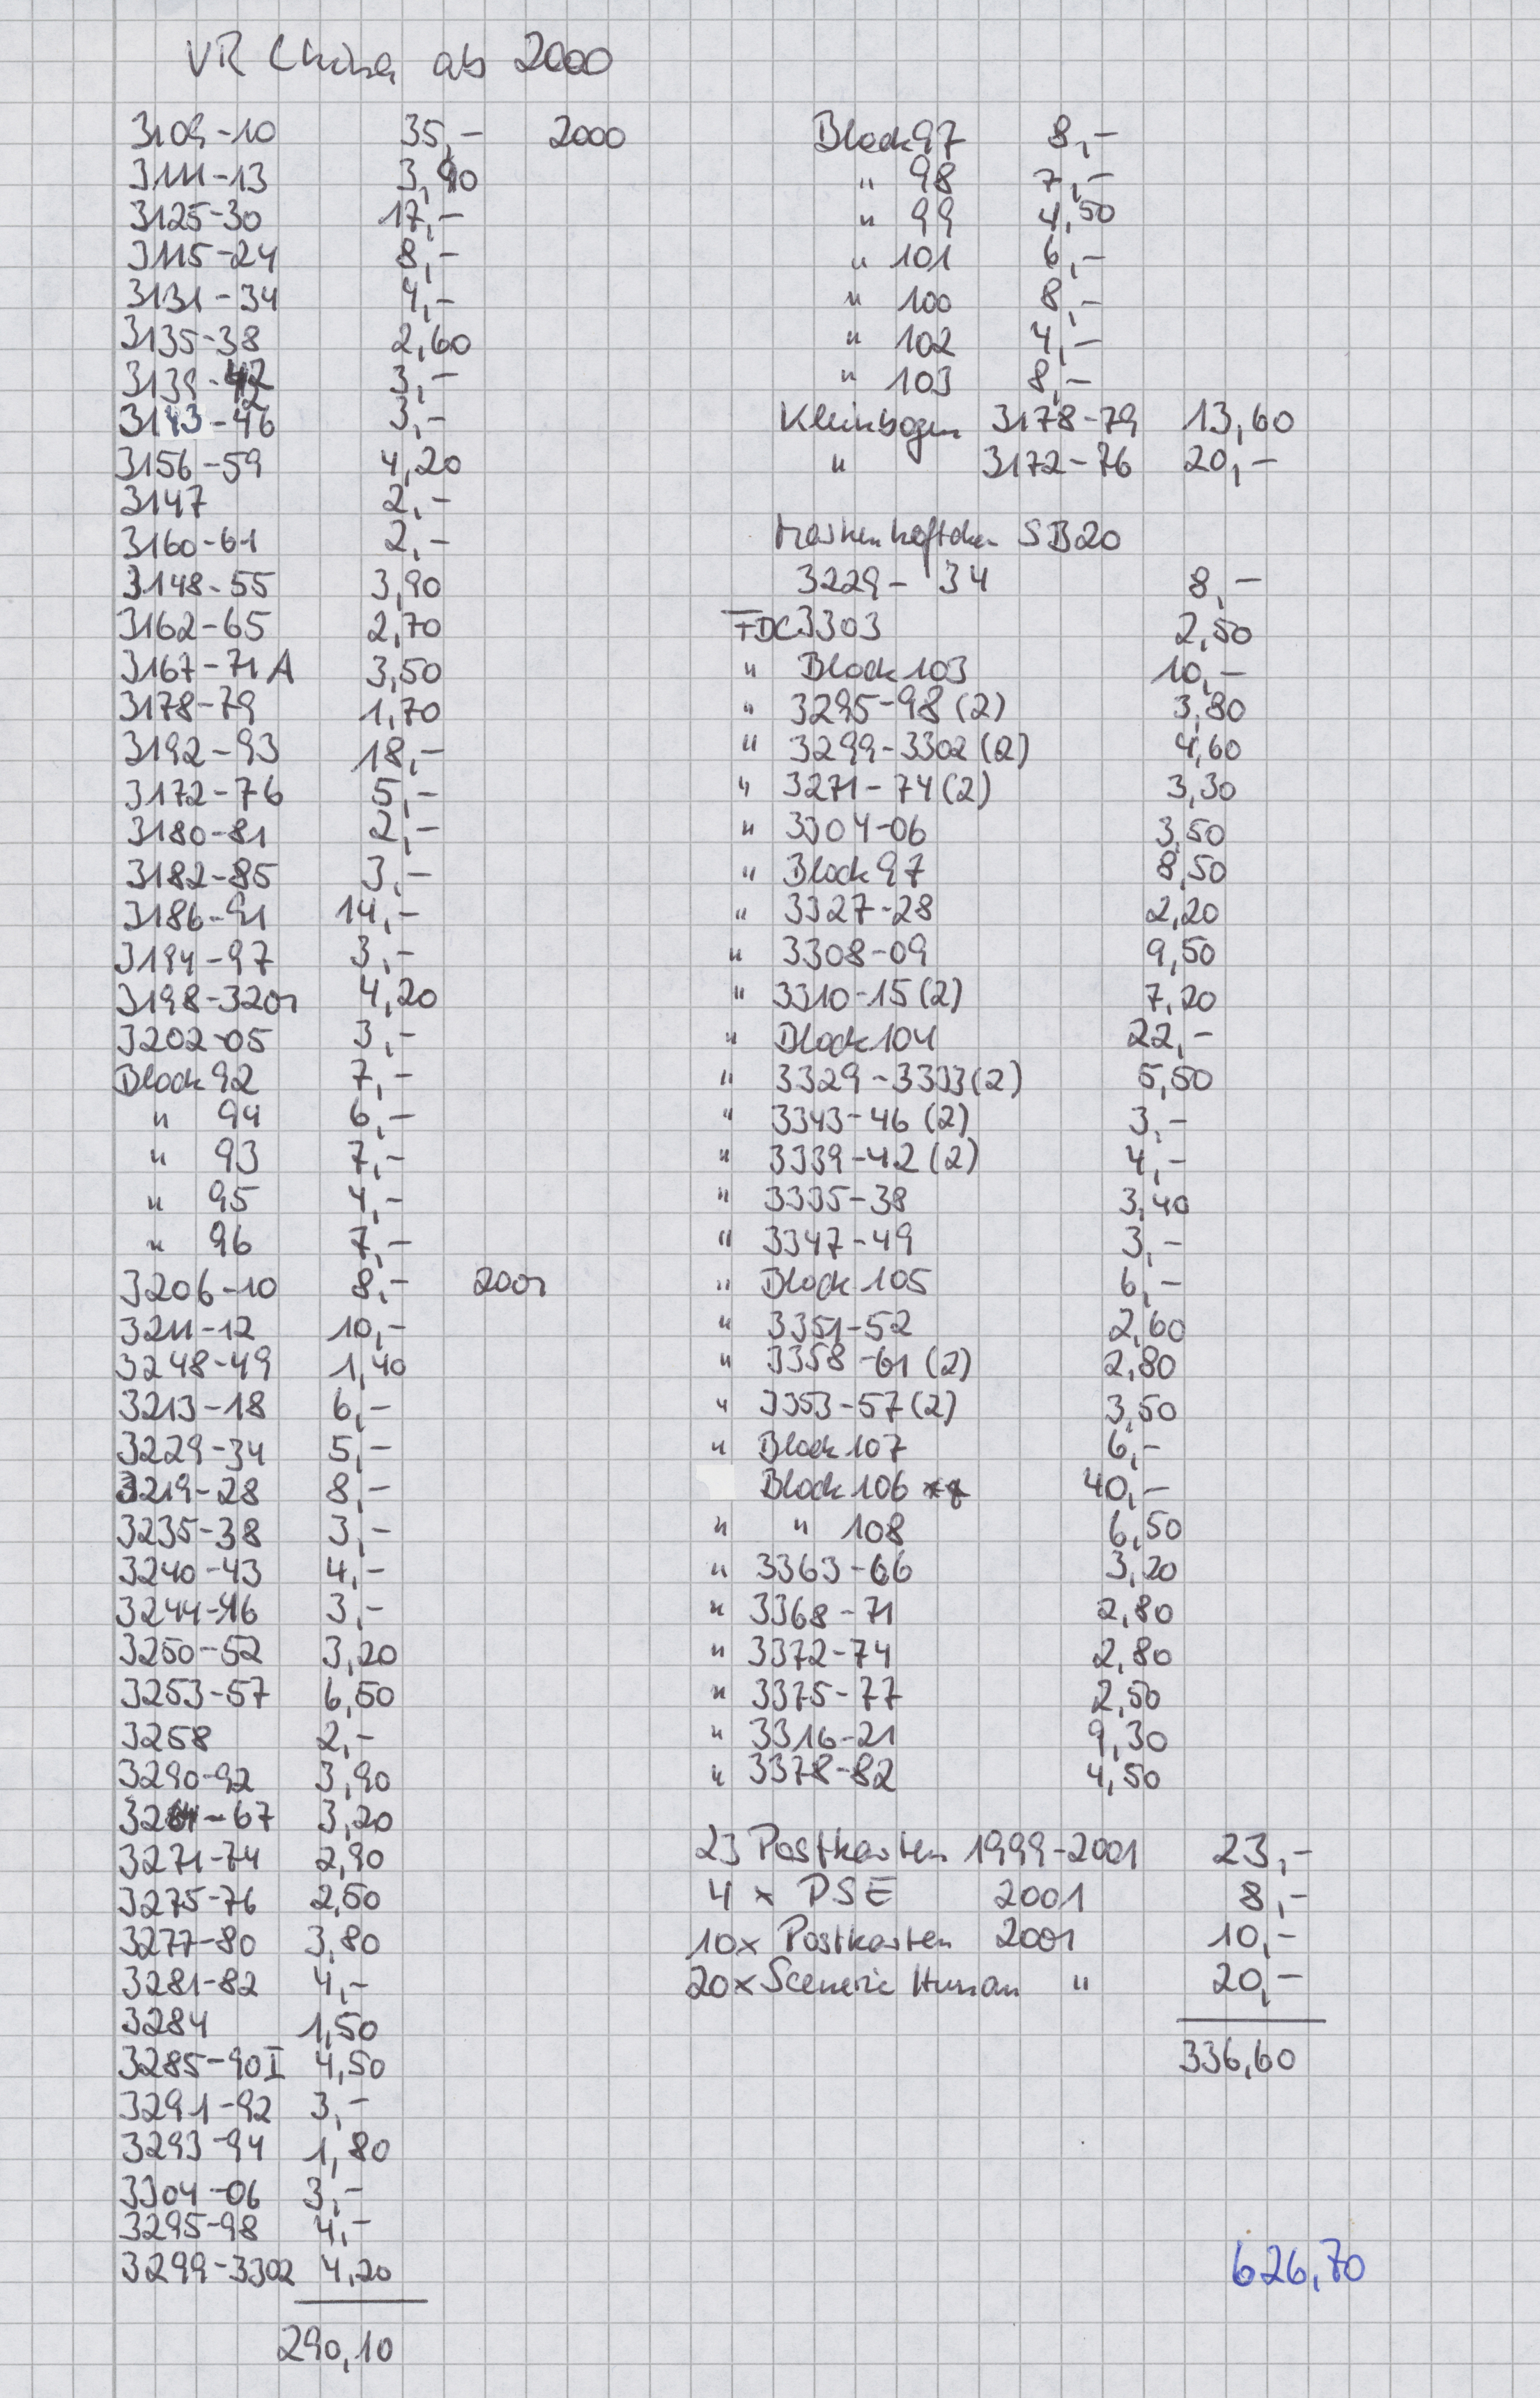 VR China ab 2000
3109-10 35,- 2000
3111-13 3,90
3125-30 17,-
3115-24 8,-
3131-34 4,-
3135-38 2,60
3139-42 3,-
3143-46 3,-
3156-59 4,20
3147 2,-
3160-61 2,-
3148-55 3,90
3162-65 2,70
3167-71 A 3,50
3178-79 1,70
3192-93 18,-
3172-76 5,-
3180-81 2,-
3182-85 3,-
3186-91 14,-
3194-97 3,-
3198-3201 4,20
3202-05 3,-
Block 92 7,-
" 94 6,-
" 93 7,-
" 95 4,-
" 96 7,-
3206-10 8,- 2001
3211-12 10,-
3248-49 1,40
3213-18 6,-
3229-34 5,-
3219-28 8,-
3235-38 3,-
3240-43 4,-
3244-46 3,-
3250-52 3,20
3253-57 6,50
3258 2,-
3290-92 3,90
3264-67 3,20
3271-74 2,90
3275-76 2,50
3277-80 3,80
3281-82 4,-
3284 1,50
3285-90I 4,50
3291-92 3,-
3293-94 1,80
3304-06 3,-
3295-98 4,-
3299-3302 4,20
290,10
Block 97 8,-
" 98 7,-
" 99 4,50
" 101 6,-
" 100 8,-
" 102 4,-
" 103 8,-
Kleinbogen 3178-79 13,60
" 3172-76 20,-
Markenheftchen SB20
3229-34 8,-
FDC 3303 2,50
" Block 103 10,-
" 3295-98 (2) 3,80
" 3299-3302 (2) 4,60
" 3271-74 (2) 3,30
" 3304-06 3,50
" Block 97 8,50
" 3327-28 2,20
" 3308-09 9,50
" 3310-15 (2) 7,20
" Block 104 22,-
" 3329-3333 (2) 5,50
" 3343-46 (2) 3,-
" 3339-42 (2) 4,-
" 3335-38 3,40
" 3347-49 3,-
" Block 105 6,-
" 3351-52 2,60
" 3358-61 (2) 2,80
" 3353-57 (2) 3,50
" Block 107 6,-
Block 106 ** 40,-
" " 108 6,50
" 3363-66 3,20
" 3368-71 2,80
" 3372-74 2,80
" 3375-77 2,50
" 3316-21 9,30
" 3378-82 4,50
23 Postkarten 1999-2001 23,-
4 x PSE 2001 8,-
10x Postkarten 2001 10,-
20x Scenerie Hunan " 20,-
336,60
626,70